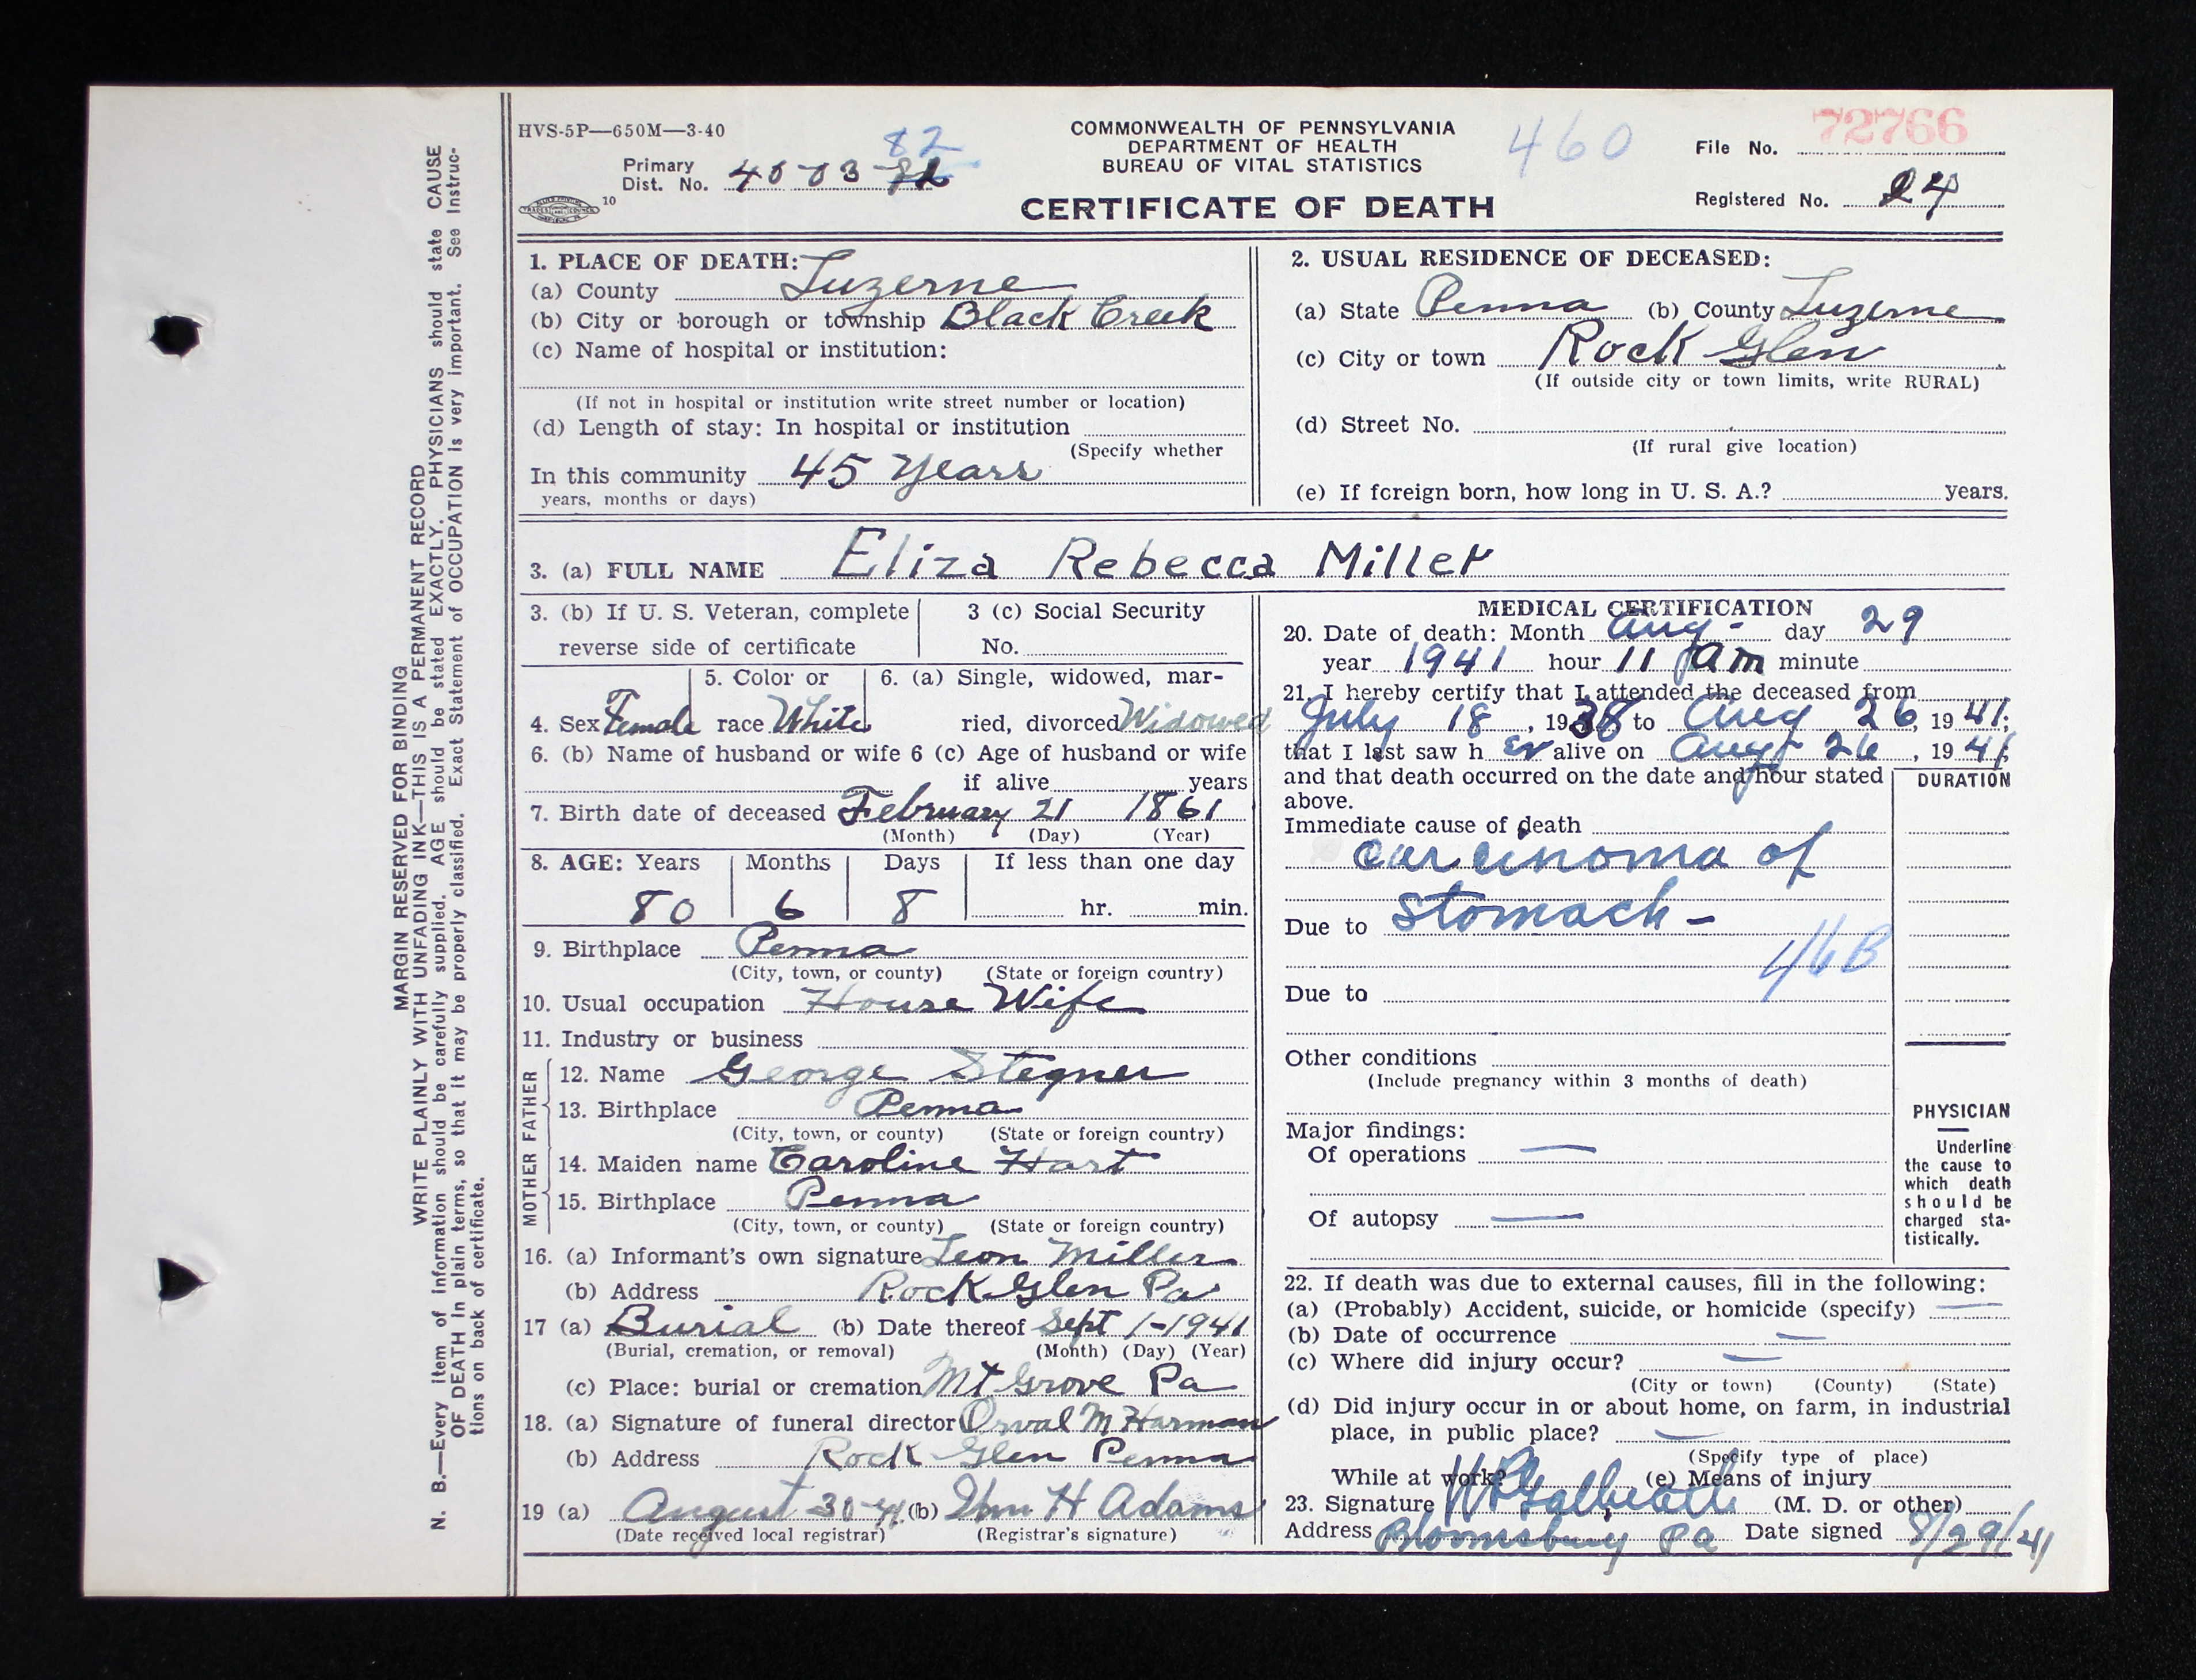 HVS-5P—650M—3-40
COMMONWEALTH OF PENNSYLVANIA
DEPARTMENT OF HEALTH
BUREAU OF VITAL STATISTICS
CERTIFICATE OF DEATH
460
File No. 72766
Registered No. 24
82
Primary
Dist. No. 40-03-82
10
MARGIN RESERVED FOR BINDING
WRITE PLAINLY WITH UNFADING INK—THIS IS A PERMANENT RECORD
N. B.—Every item of information should be carefully supplied. AGE should be stated EXACTLY. PHYSICIANS should state CAUSE
OF DEATH in plain terms, so that it may be properly classified. Exact Statement of OCCUPATION is very important. See Instruc-
tions on back of certificate.
1. PLACE OF DEATH:
(a) County Luzerne
(b) City or borough or township Black Creek
(c) Name of hospital or institution:
(If not in hospital or institution write street number or location)
(d) Length of stay: In hospital or institution
(Specify whether
In this community 45 Years
years, months or days)
2. USUAL RESIDENCE OF DECEASED:
(a) State Penna (b) County Luzerne
(c) City or town Rock Glen
(If outside city or town limits, write RURAL)
(d) Street No.
(If rural give location)
(e) If foreign born, how long in U. S. A.? years.
3. (a) FULL NAME Eliza Rebecca Miller
3. (b) If U. S. Veteran, complete
reverse side of certificate
3 (c) Social Security
No.
4. Sex Female
5. Color or
race White
6. (a) Single, widowed, mar-
ried, divorced Widowed
6. (b) Name of husband or wife 6 (c) Age of husband or wife
if alive years
7. Birth date of deceased February 21 1861
(Month) (Day) (Year)
8. AGE: Years Months Days If less than one day
80 6 8 hr. min.
9. Birthplace Penna
(City, town, or county) (State or foreign country)
10. Usual occupation House Wife
11. Industry or business
FATHER
12. Name George Stegner
13. Birthplace Penna
(City, town, or county) (State or foreign country)
MOTHER
14. Maiden name Caroline Hart
15. Birthplace Penna
(City, town, or county) (State or foreign country)
16. (a) Informant's own signature Leon Miller
(b) Address Rock Glen Pa
17 (a) Burial (b) Date thereof Sept 1-1941
(Burial, cremation, or removal) (Month) (Day) (Year)
(c) Place: burial or cremation Mt Grove Pa
18. (a) Signature of funeral director Orval M Harman
(b) Address Rock Glen Penna
19 (a) August 30-41 (b) H Adams
(Date received local registrar) (Registrar's signature)
MEDICAL CERTIFICATION
20. Date of death: Month Aug- day 29
year 1941 hour 11 am minute
21. I hereby certify that I attended the deceased from
July 18, 1938 to Aug 26, 1941;
that I last saw h er alive on Aug 26, 1941;
and that death occurred on the date and hour stated
above.
DURATION
Immediate cause of death
carcinoma of
Due to stomach-
46B
Due to
Other conditions
(Include pregnancy within 3 months of death)
Major findings:
Of operations —
Of autopsy —
PHYSICIAN
Underline
the cause to
which death
should be
charged sta-
tistically.
22. If death was due to external causes, fill in the following:
(a) (Probably) Accident, suicide, or homicide (specify) —
(b) Date of occurrence —
(c) Where did injury occur? —
(City or town) (County) (State)
(d) Did injury occur in or about home, on farm, in industrial
place, in public place? —
(Specify type of place)
While at work? (e) Means of injury
23. Signature (M. D. or other)
Address Bloomsbury Pa Date signed 8/29/41